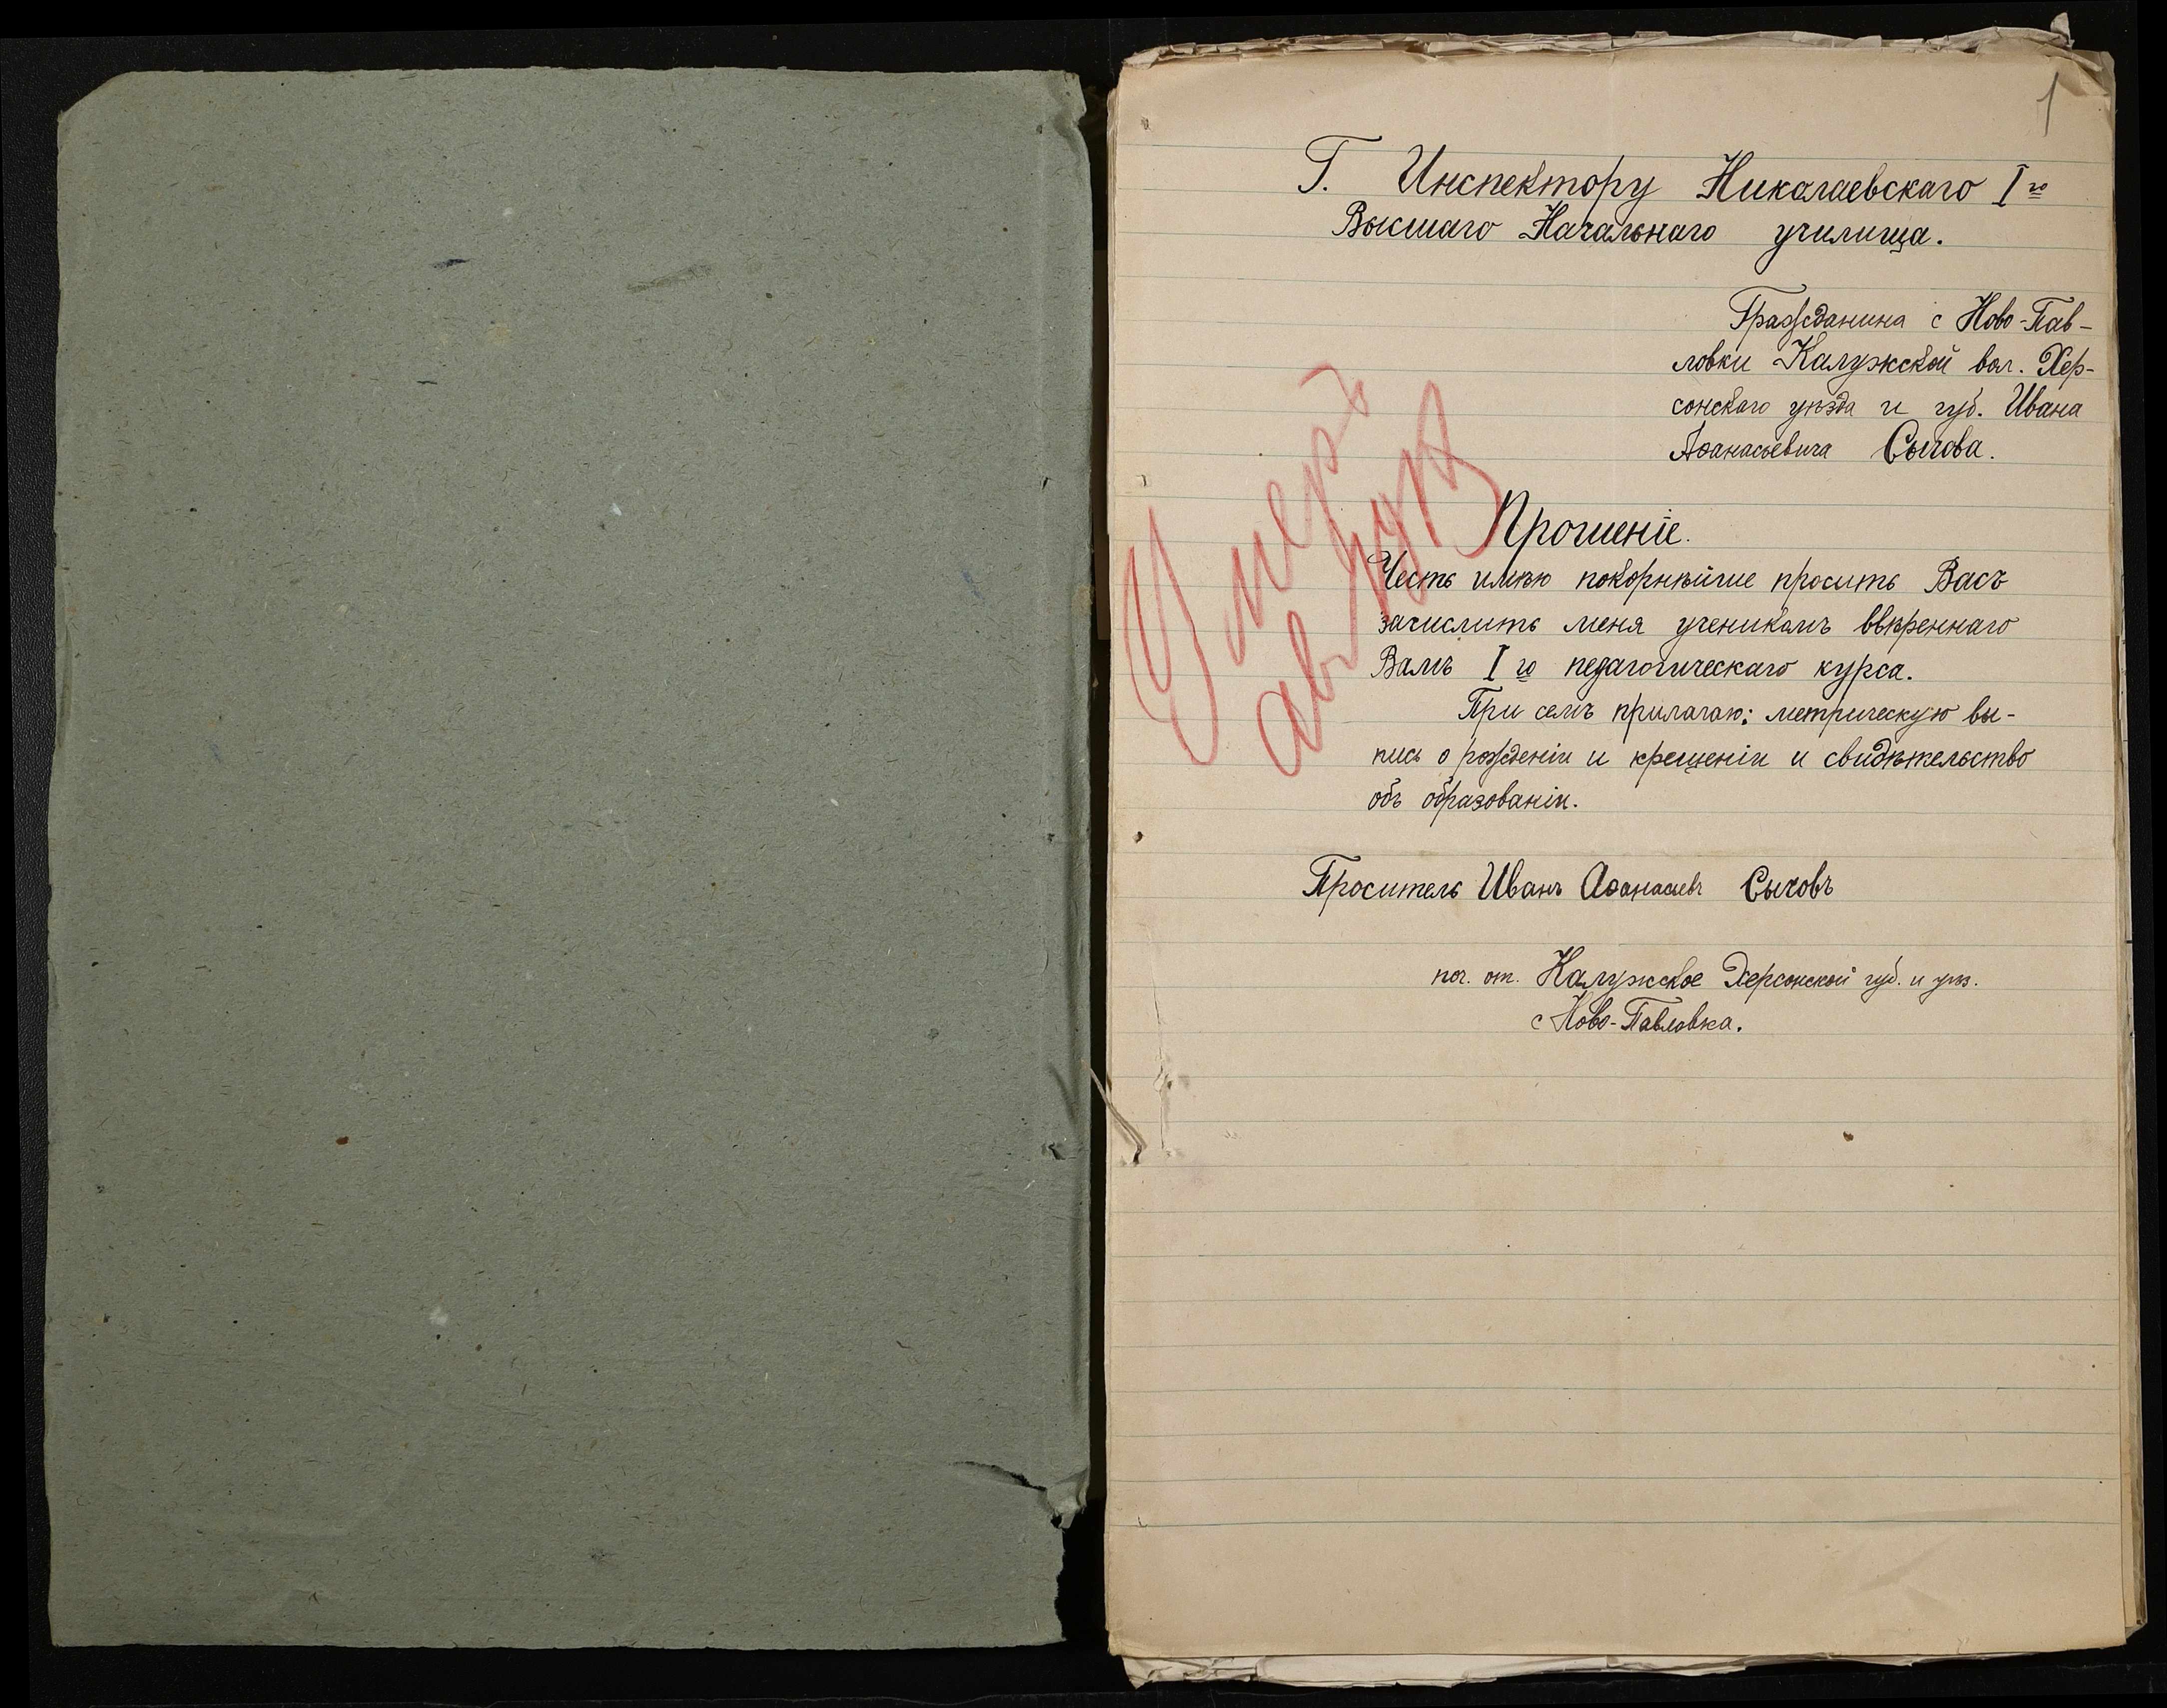 1
Г. Инспектору Николаевскаго I го
Высшаго Начальнаго училища.
Гражданина с Ново-Пав-
ловки Калужской вол. Хер-
сонскаго уѣзда и губ. Ивана
Аѳанасьевича Сычова.
Умеръ
Прошеніе.
Честь имѣю покорнѣйше просить Васъ
зачислить меня ученикомъ ввѣреннаго
Вамъ I го педагогическаго курса.
При семъ прилагаю: метрическую вы-
пись о рожденіи и крещеніи и свидѣтельство
объ образованіи.
Проситель Иванъ Аѳанасьевъ Сычовъ
поч. от. Калужское Херсонской губ. и уѣз.
с Ново-Павловка.